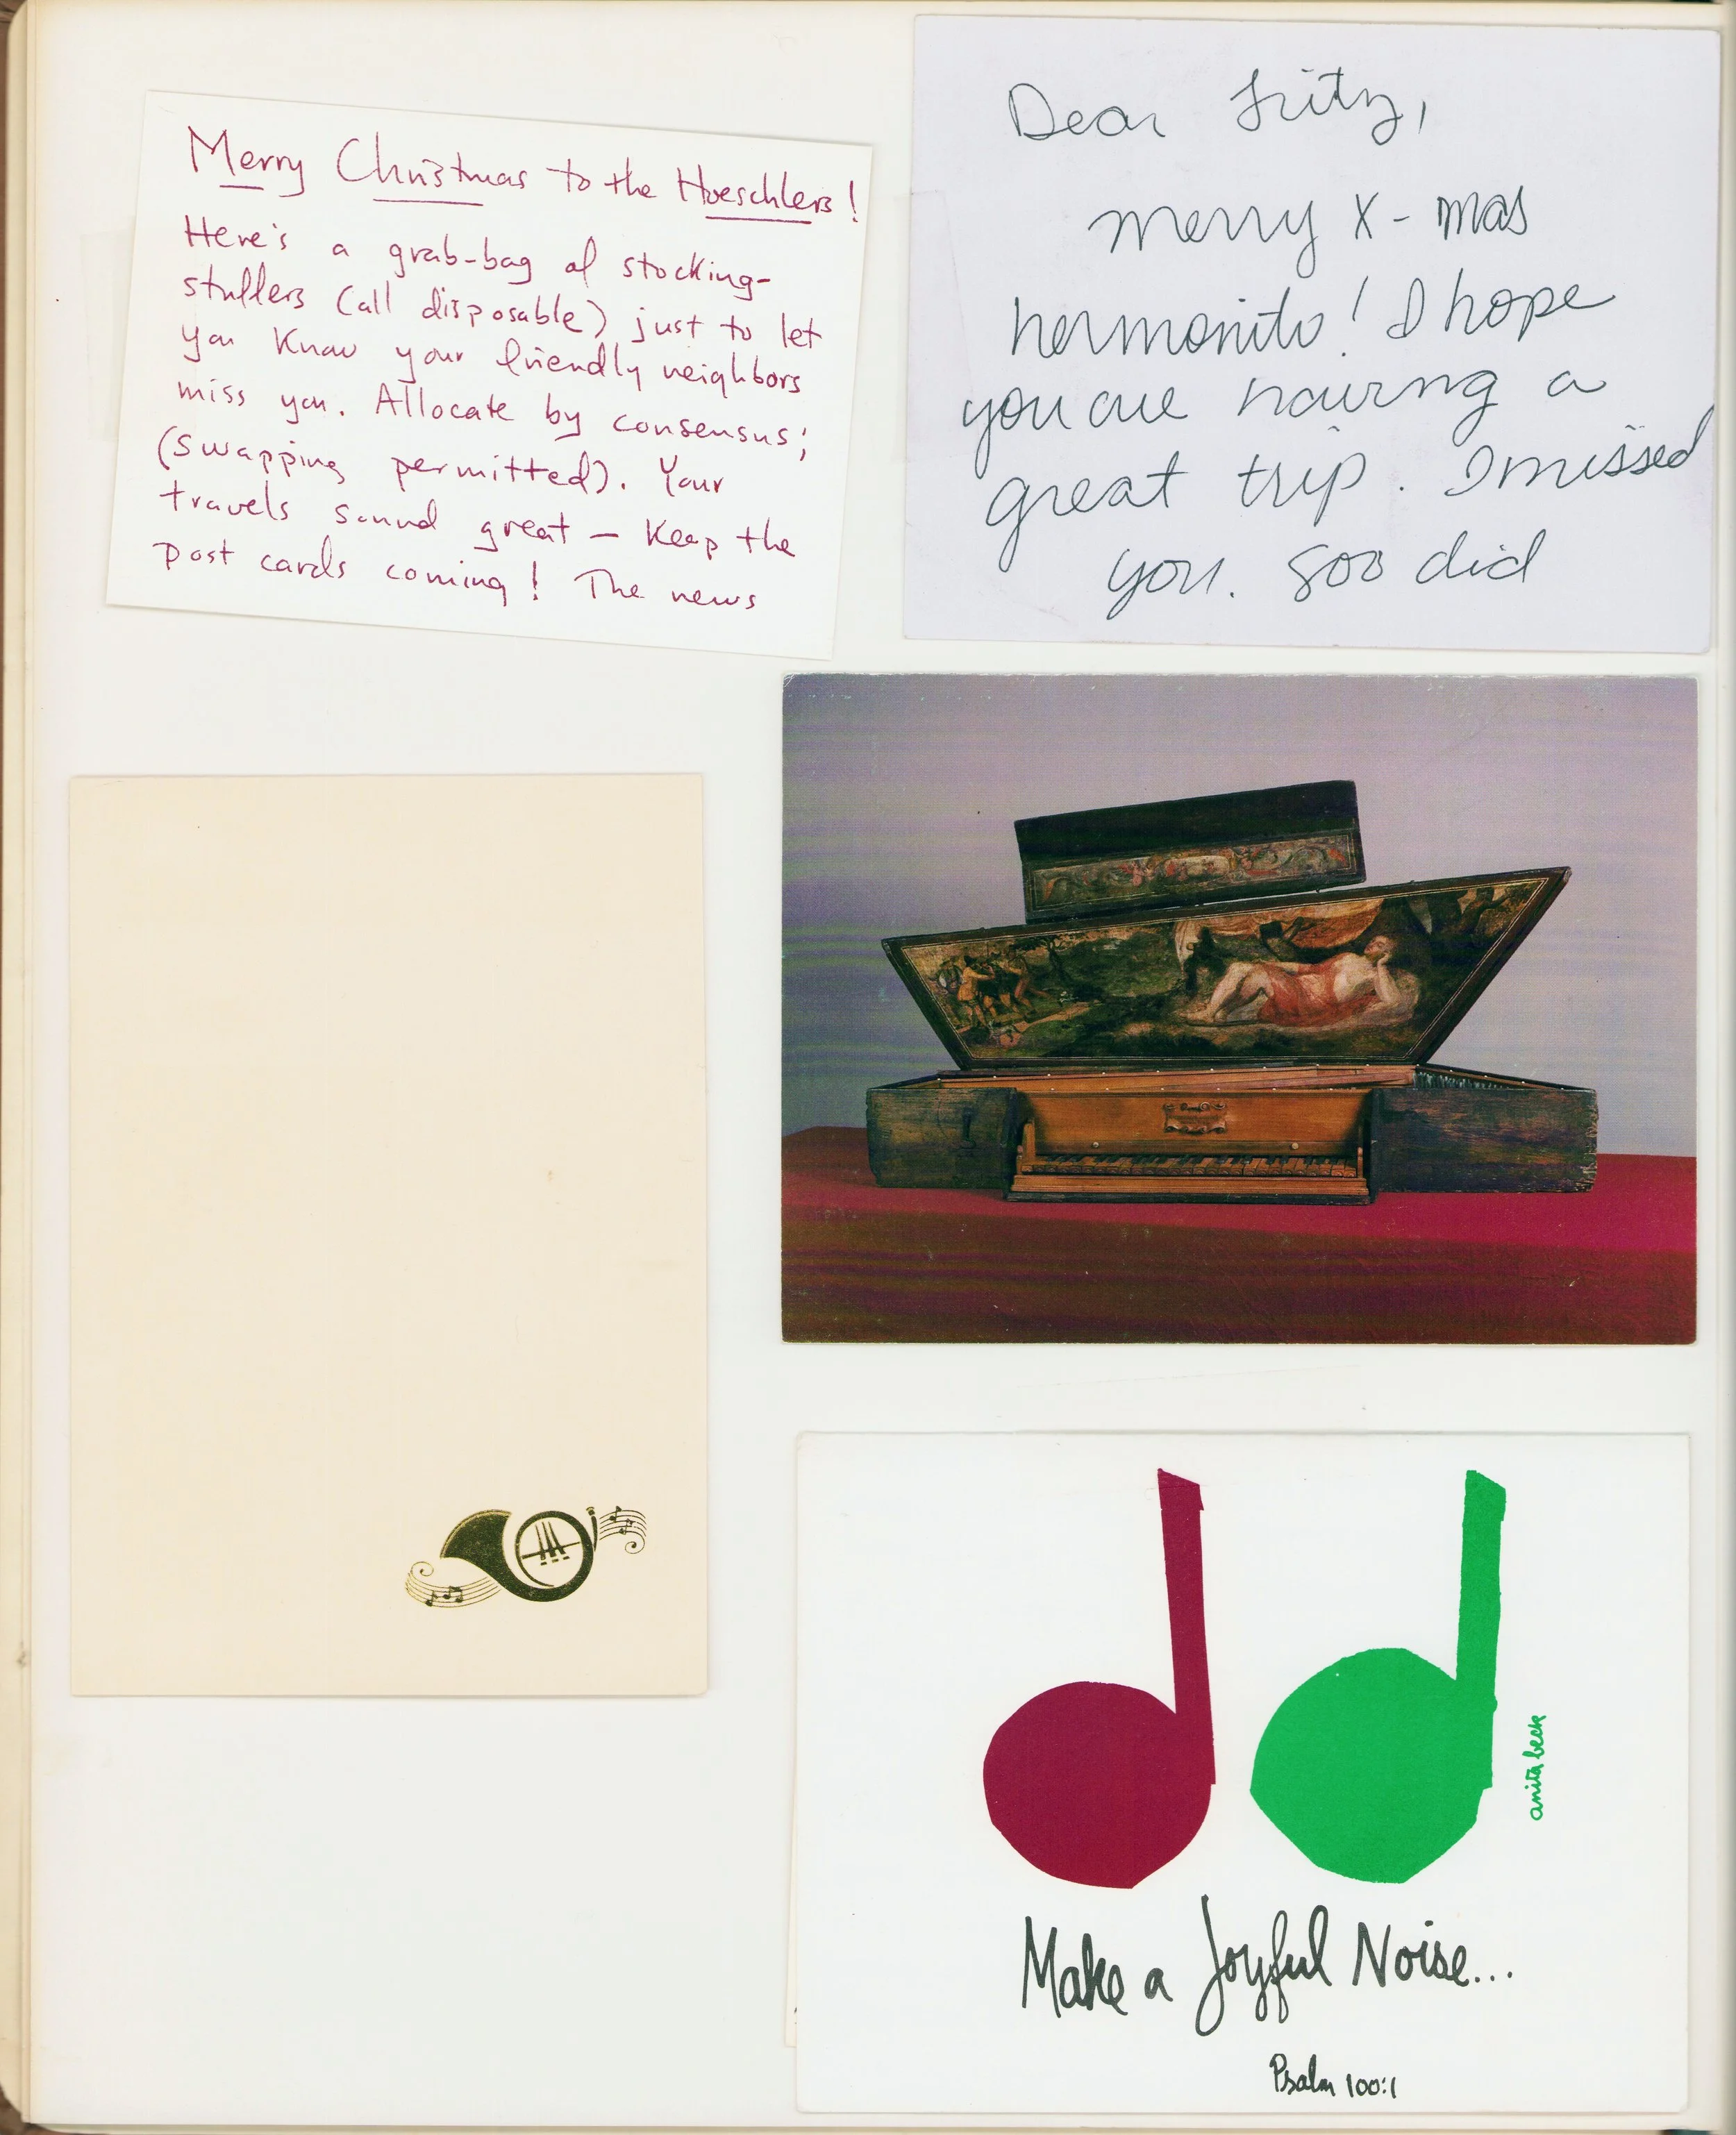 Merry Christmas to the Hoeschlers!
Here's a grab-bag of stocking-
stuffers (all disposable) just to let
you know your friendly neighbors
miss you. Allocate by consensus;
(swapping permitted). Your
travels sound great – Keep the
post cards coming! The news
Dear Fritz,
merry X-mas
hermanito! I hope
you are having a
great trip. I missed
you. soo did
anita beck
Make a Joyful Noise...
Psalm 100:1